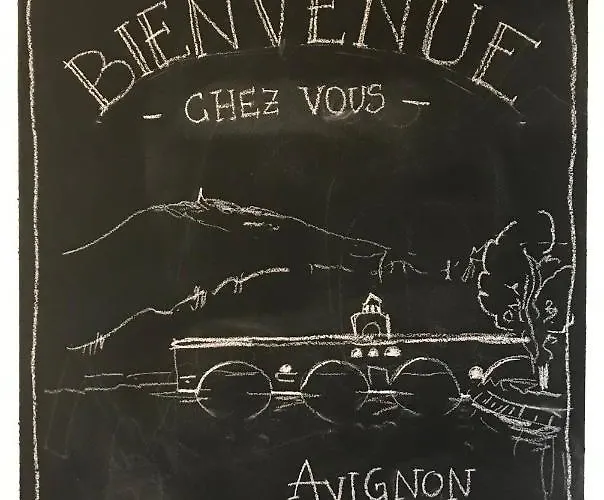 BIENVENUE
- CHEZ VOUS -
AVIGNON